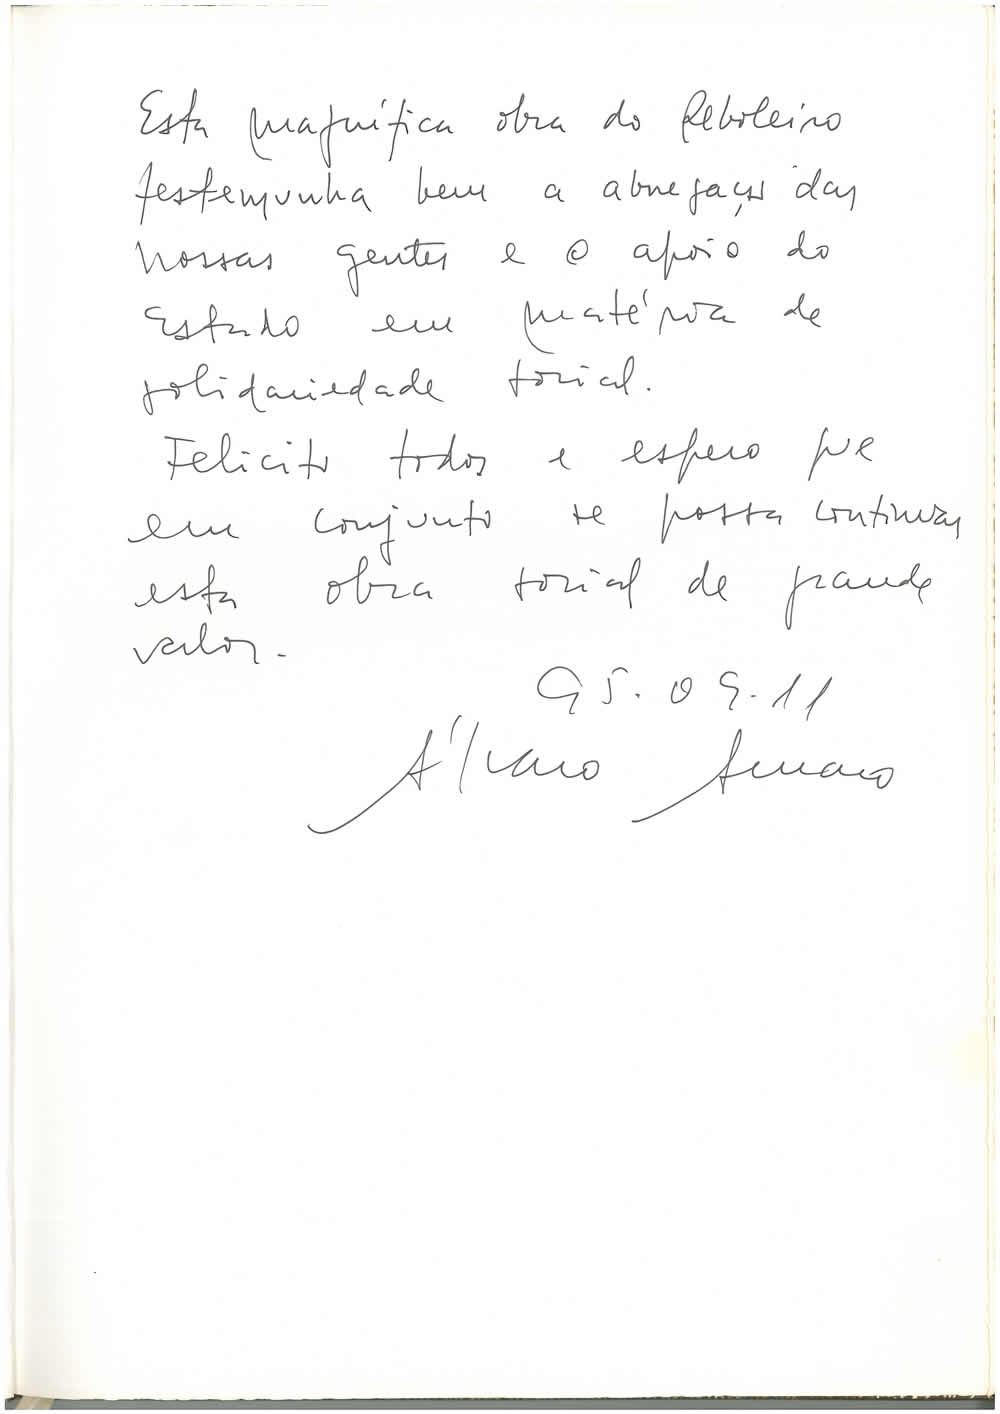 Esta magnífica obra do Reboleiro
testemunha bem a abnegação das
nossas gentes e o apoio do
Estado em matéria de
solidariedade social.
Felicito todos e espero que
em conjunto se possa continuar
esta obra social de grande
valor.-
95.09.11
Álvaro Amaro